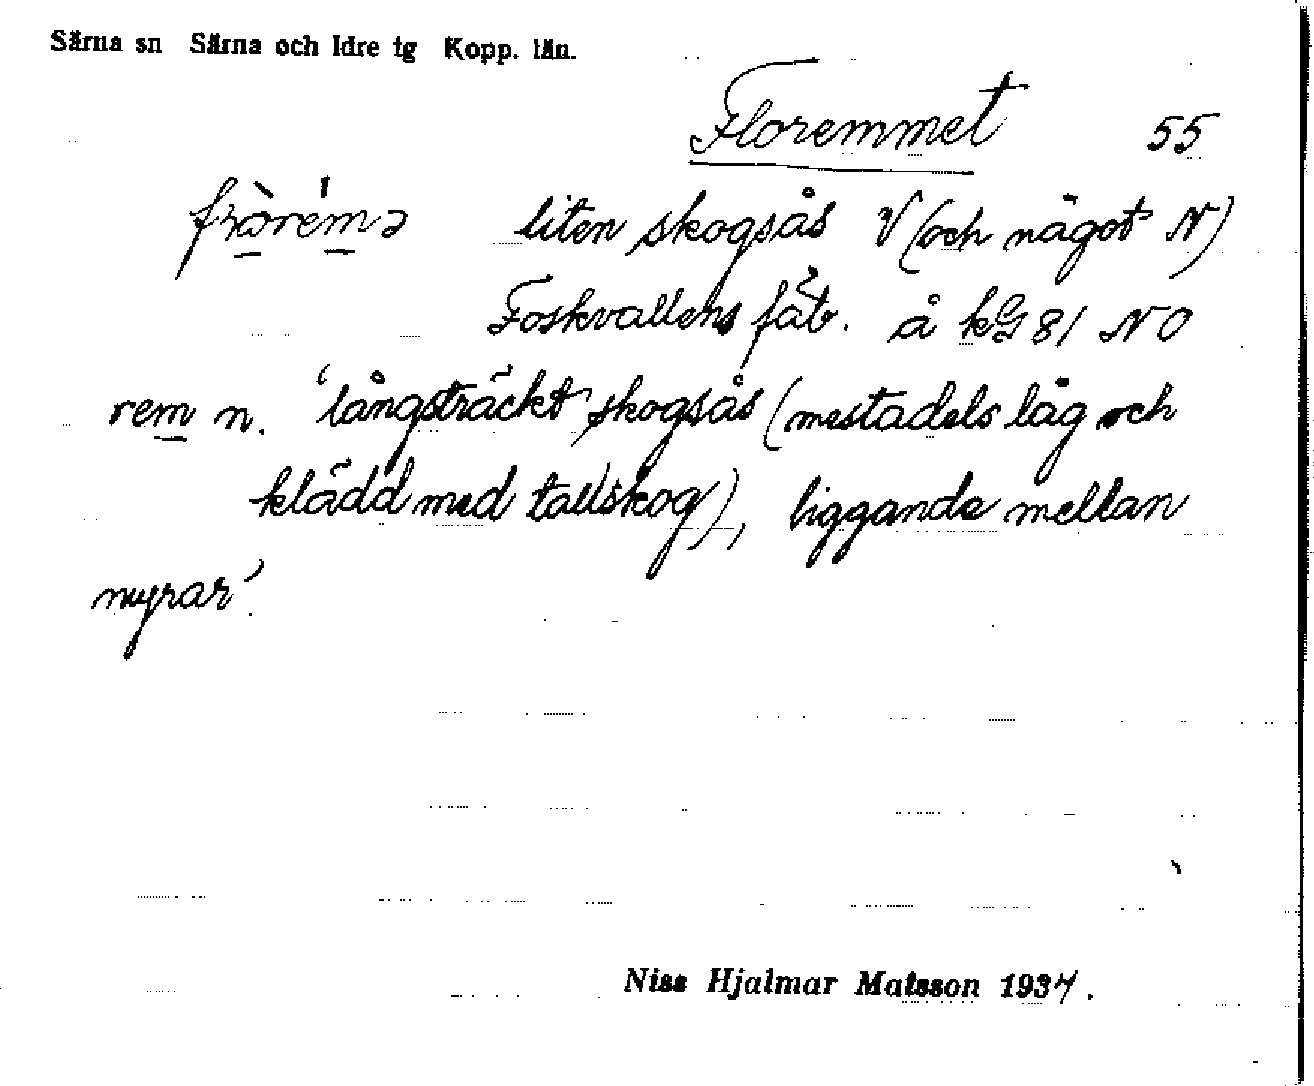 Särna sn Särna och Idre tg Kopp. län.
Floremmet 55
fròrémə liten skogsås V (och något N)
Foskvallens fäb. å kG 81 NO
rem n. 'långsträckt skogsås (mestadels låg och
klädd med tallskog), liggande mellan
myrar'.
Niss Hjalmar Matsson 1937.